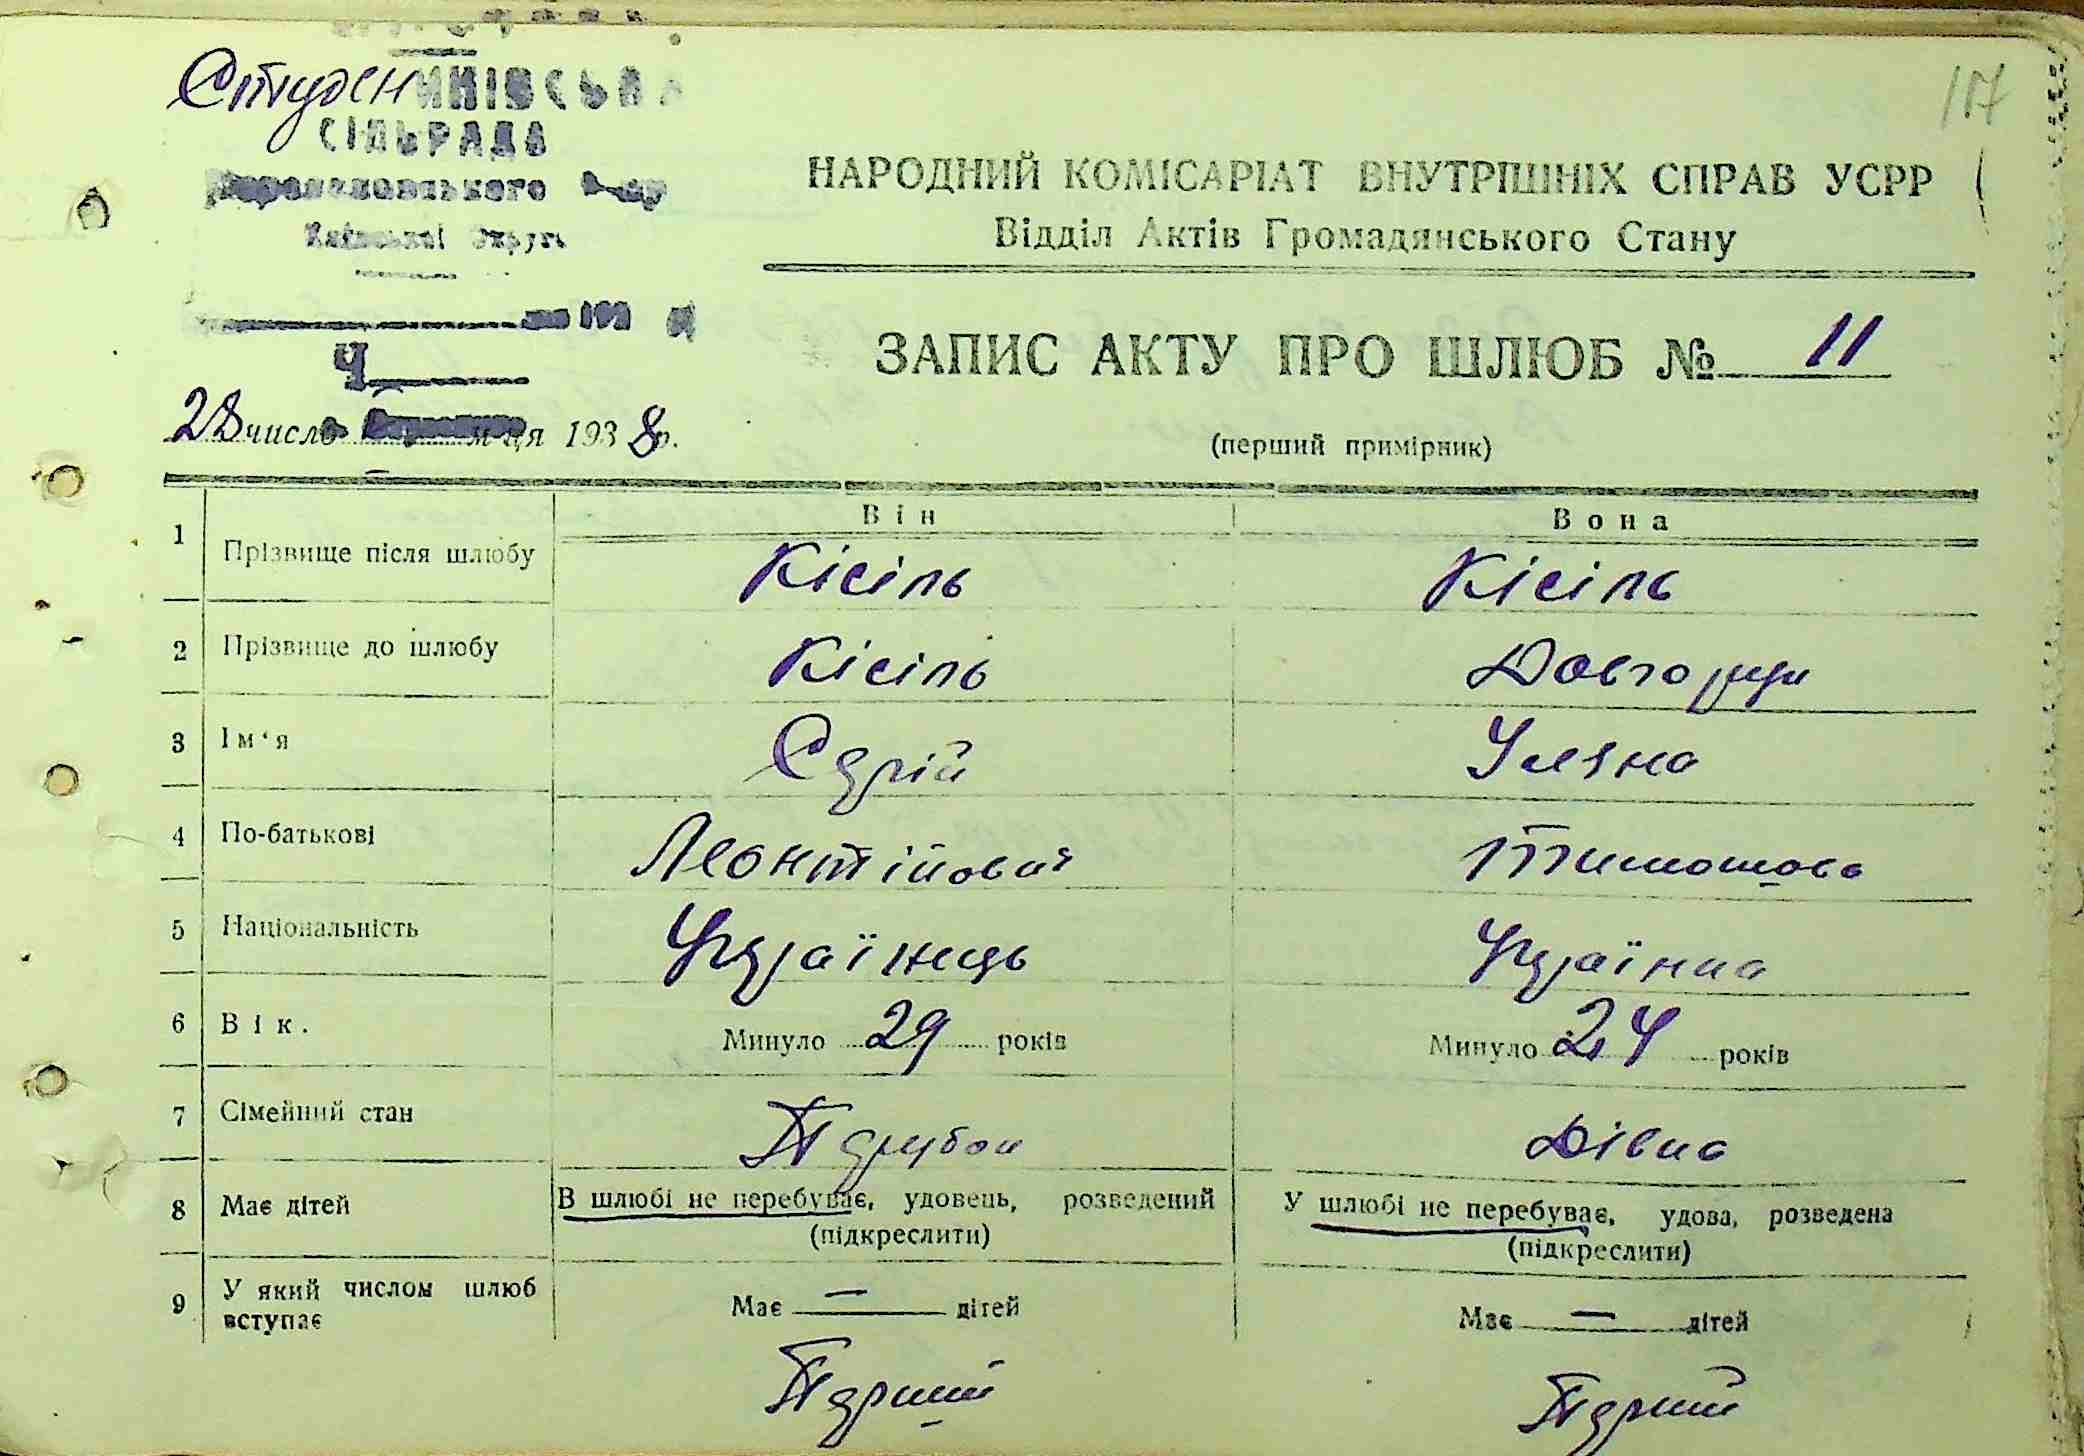 Студениківська
СІЛЬРАДА
Київської Округи
Ч
28 число м-ця 1938 р.
117
НАРОДНИЙ КОМІСАРІАТ ВНУТРІШНІХ СПРАВ УСРР
Відділ Актів Громадянського Стану
ЗАПИС АКТУ ПРО ШЛЮБ № 11
(перший примірник)
Він Вона
1 Прізвище після шлюбу Кісіль Кісіль
2 Прізвище до шлюбу Кісіль
3 Ім'я Сергій Уляна
4 По-батькові Леонтійович Тимошова
5 Національність Українець Українка
6 Вік. Минуло 29 років Минуло 24 років
7 Сімейний стан Парубок Дівка
8 Має дітей В шлюбі не перебуває, удовець, розведений У шлюбі не перебуває, удова, розведена
(підкреслити) (підкреслити)
9 У який числом шлюб вступає Має — дітей Має — дітей
Перший Перший